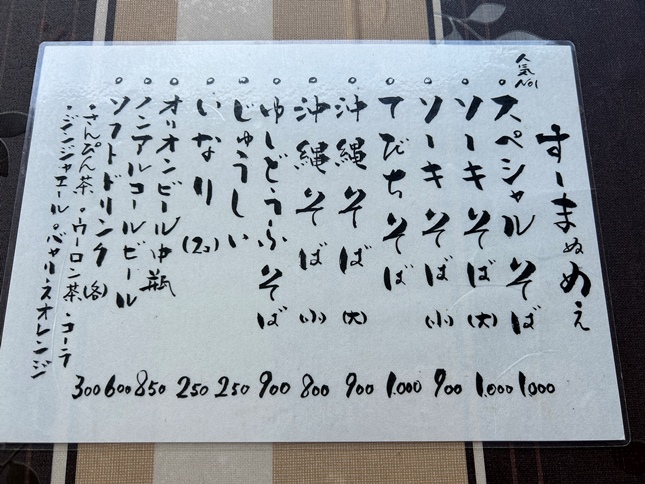 すーまぬめえ
人気No1
○スペシャルそば 1,000
○ソーキそば(大) 1,000
○ソーキそば(小) 900
○てびちそば 1,000
○沖縄そば(大) 900
○沖縄そば(小) 800
○ゆしどうふそば 900
○じゅうしい 250
○いなり(2コ) 250
○オリオンビール中瓶 850
○ノンアルコールビール 600
○ソフトドリンク(各) 300
・さんぴん茶・ウーロン茶・コーラ
・ジンジャエール・バヤリスオレンジ